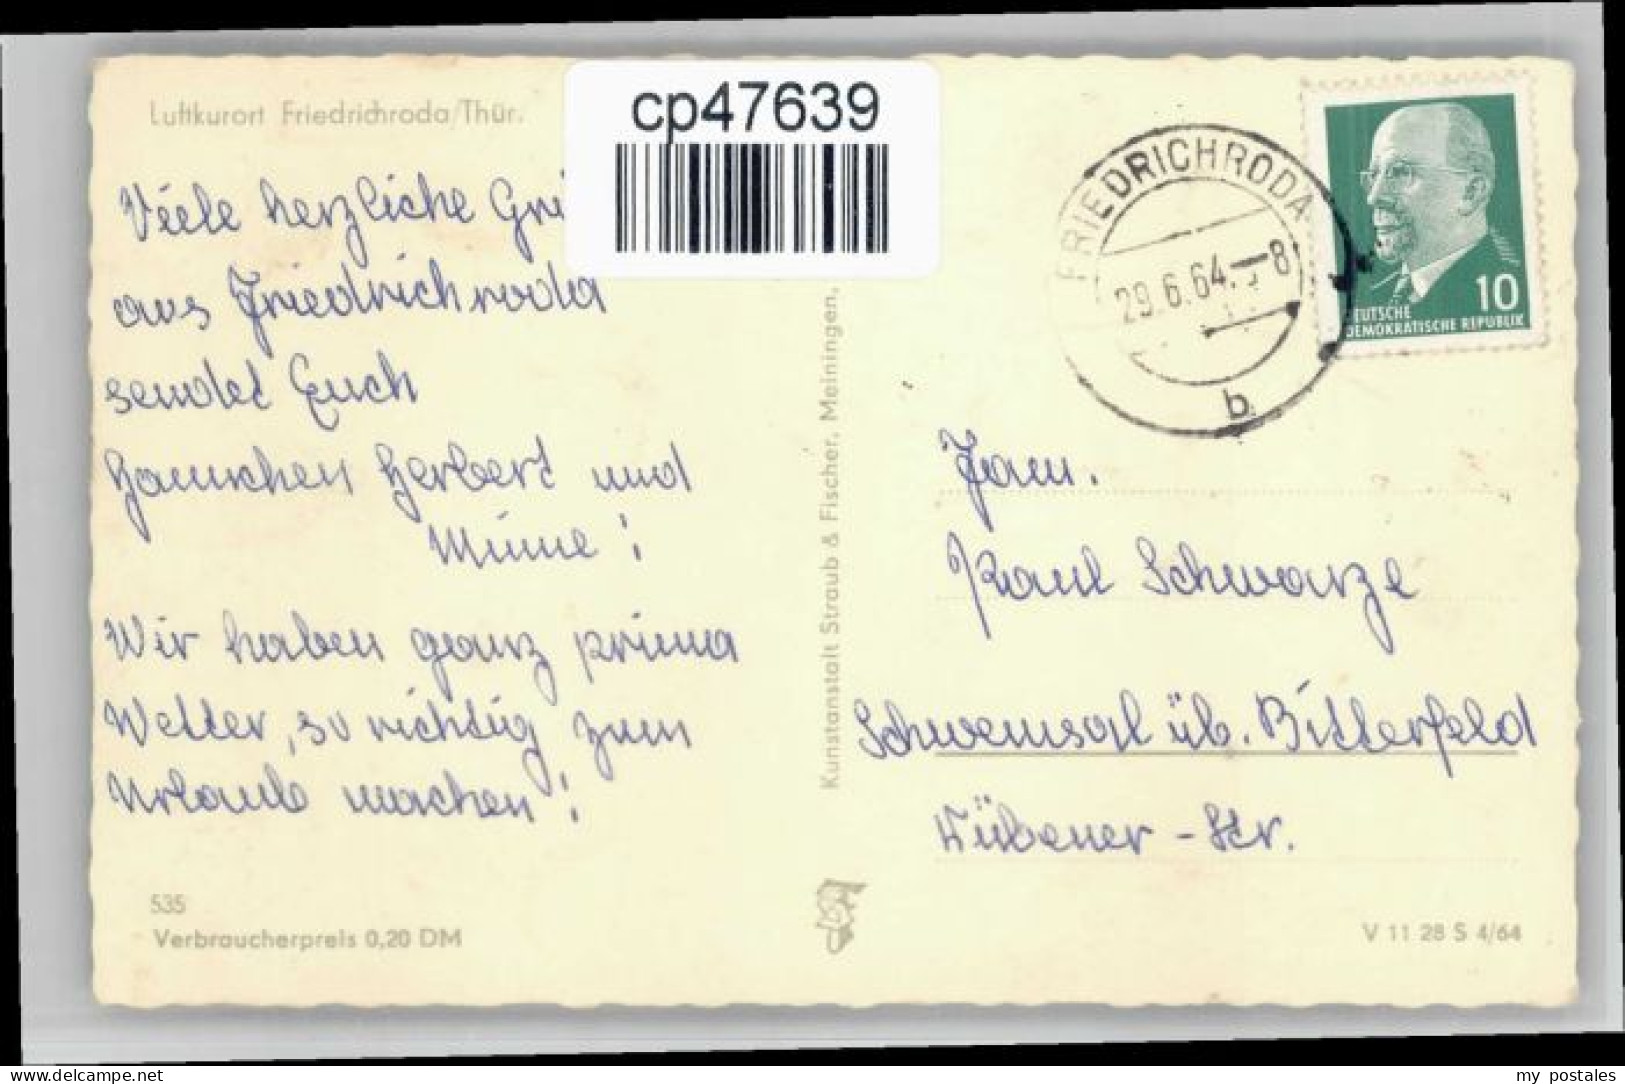 Luftkurort Friedrichroda/Thür.
cp47639
Viele herzliche Grü
aus Friedrichroda
sendet Euch
Hannchen Herbert und
Minne!
Wir haben ganz prima
Wetter, so richtig zum
Urlaub machen!
535
Verbraucherpreis 0,20 DM
Kunstanstalt Straub & Fischer, Meiningen,
FRIEDRICHRODA
29.6.64.-8
b
10
DEUTSCHE
DEMOKRATISCHE REPUBLIK
Fam.
Paul Schwarze
Schwemsal üb. Bitterfeld
Dübener-Str.
V 11 28 S 4/64
my_postales